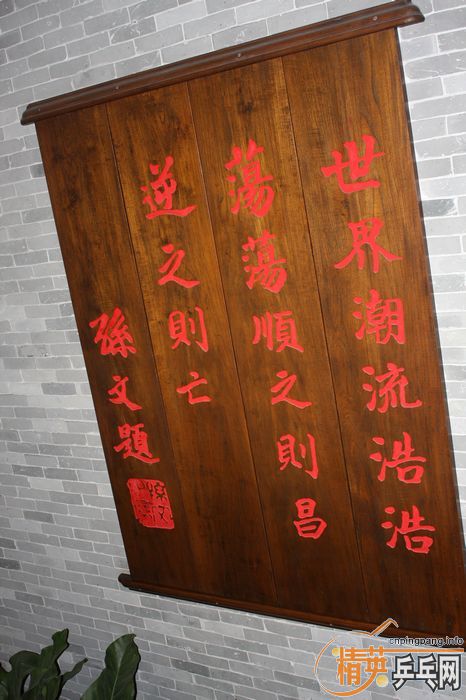 世界潮流浩浩
蕩蕩順之則昌
逆之則亡
孫文題
孫文
cnpingpang.info
精英乒乓网